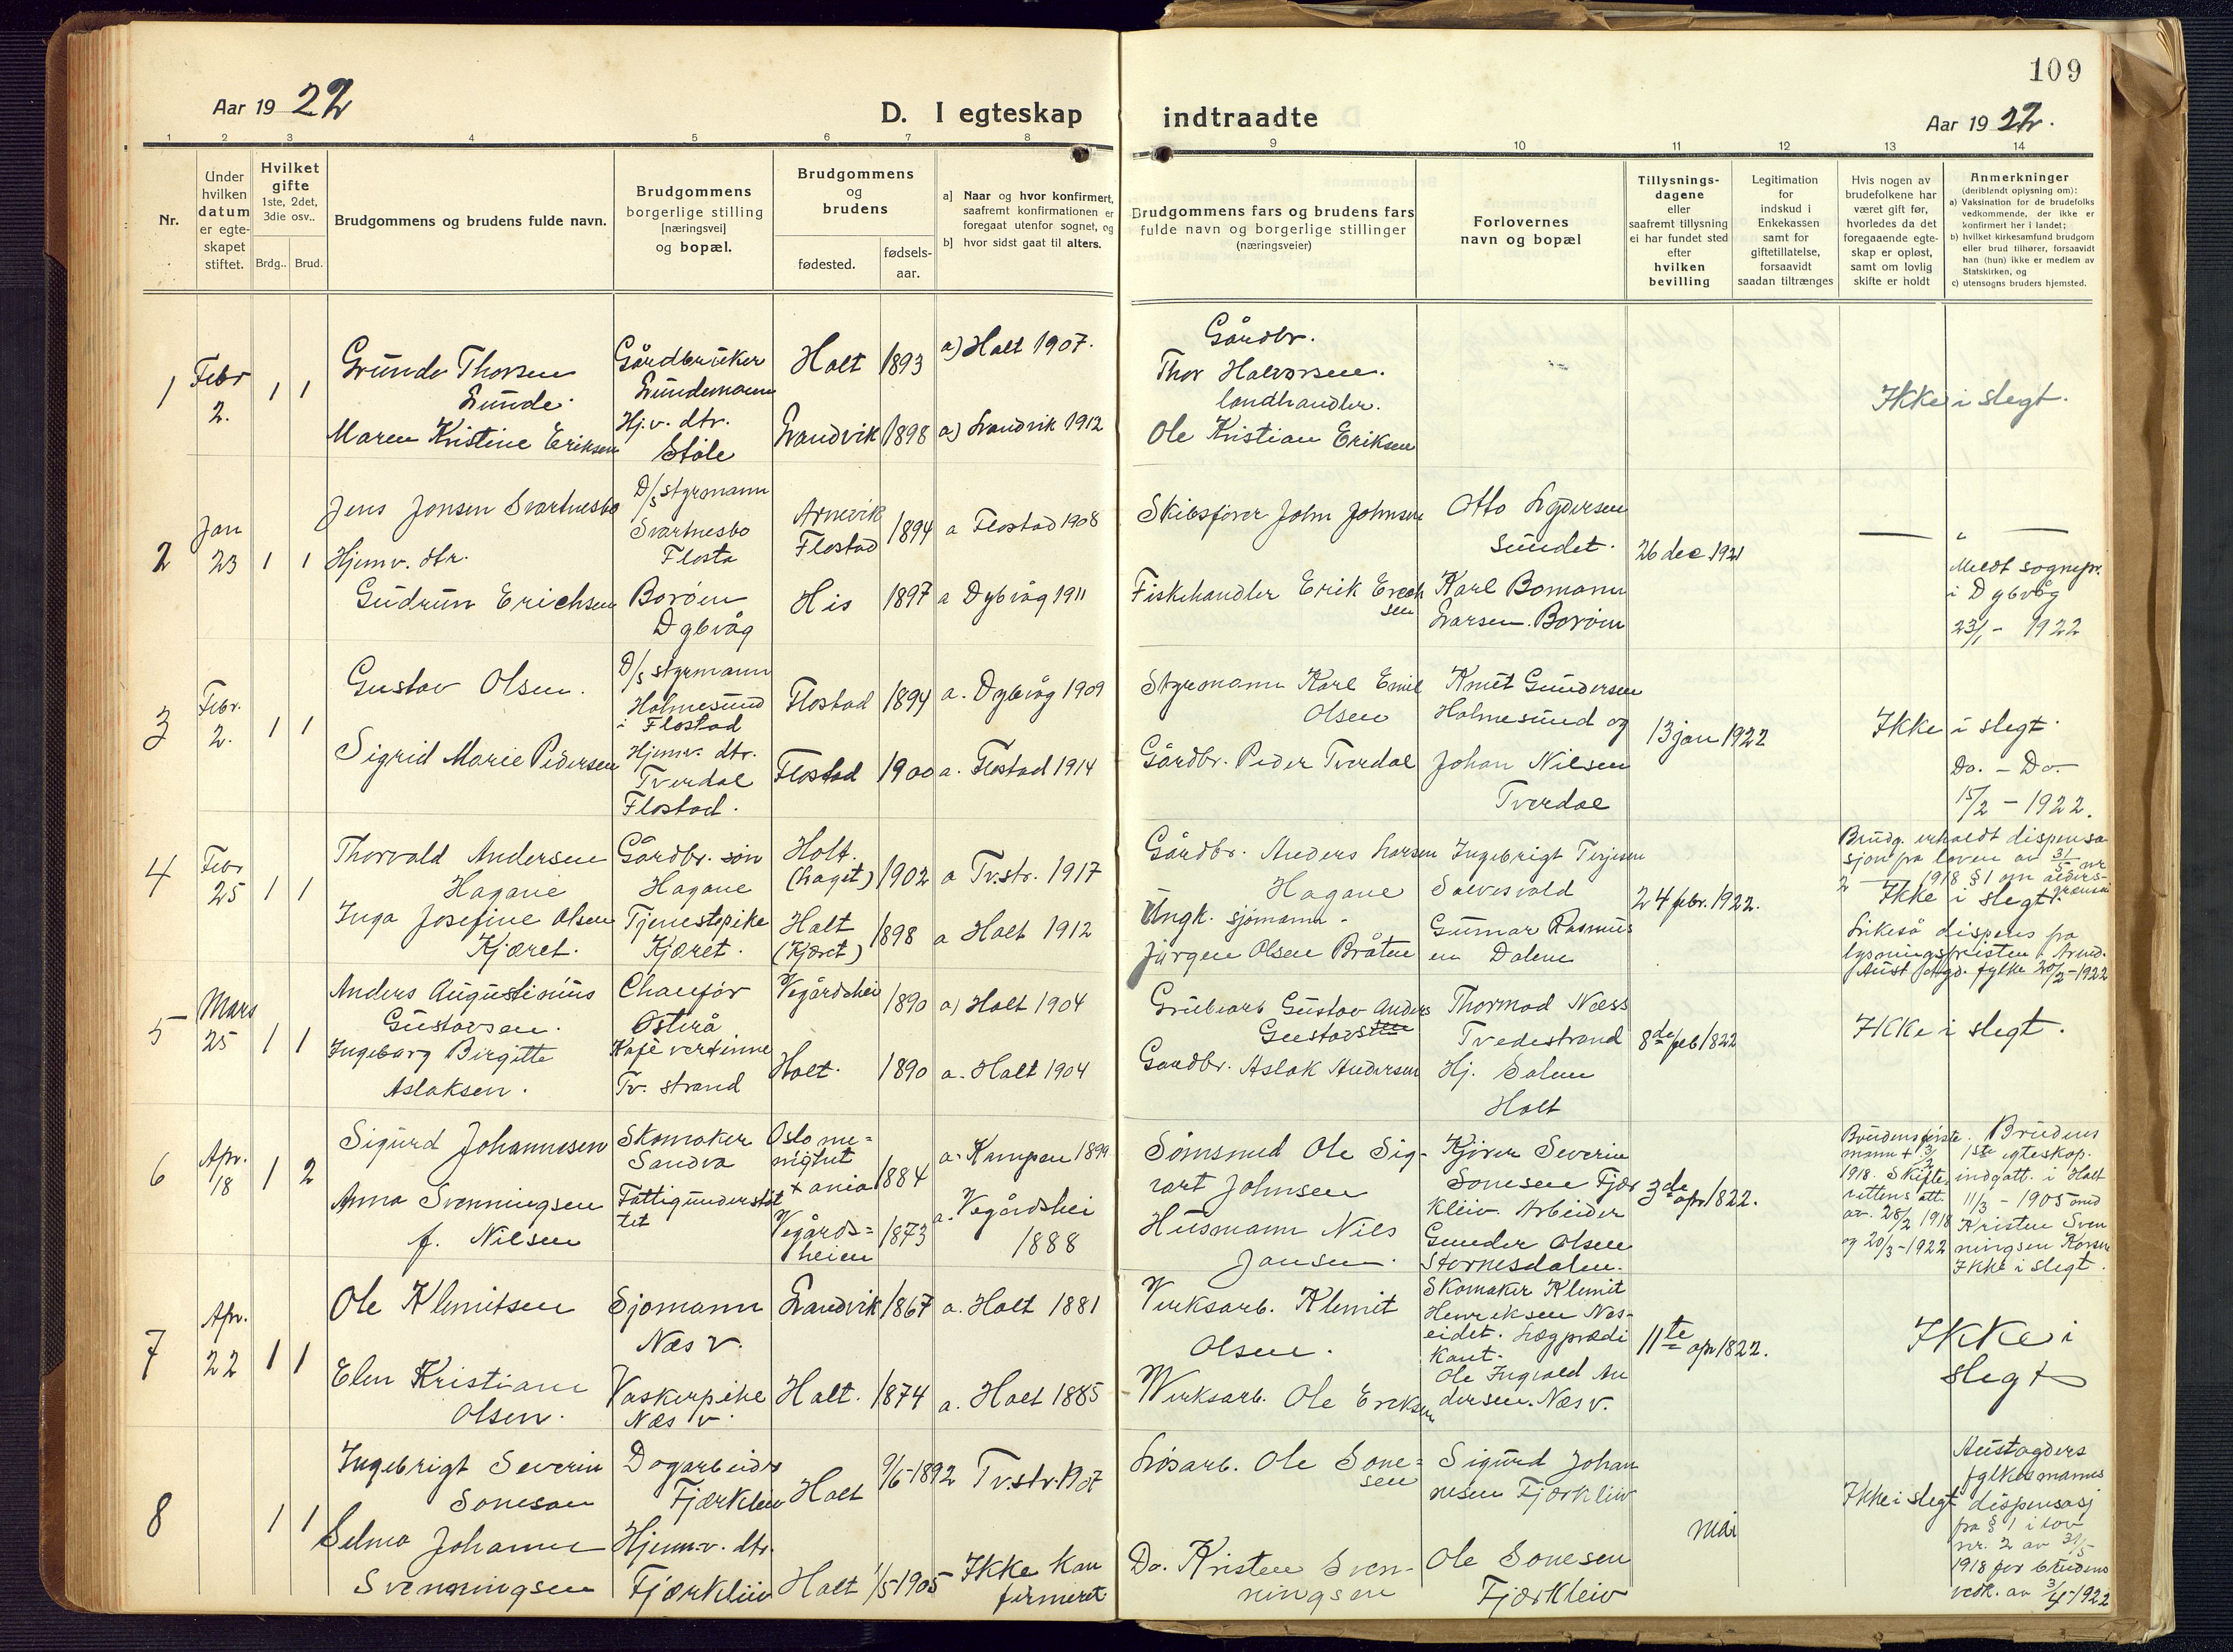 109
Aar 1922
D. I egteskap indtraadte
Aar 1922.
1 2 3 4 5 6 7 8 9 10 11 12 13 14
Nr.
Under hvilken datum er egteskapet stiftet.
Hvilket gifte 1ste, 2det, 3die osv..
Brdg.. Brud.
Brudgommens og brudens fulde navn.
Brudgommens borgerlige stilling [næringsvei] og bopæl.
Brudgommens og brudens
fødested. fødsels-aar.
a) Naar og hvor konfirmert, saafremt konfirmationen er foregaat utenfor sognet, og
b) hvor sidst gaat til alters.
Brudgommens fars og brudens fars fulde navn og borgerlige stillinger (næringsveier)
Forlovernes navn og bopæl
Tillysnings-dagene eller saafremt tillysning ei har fundet sted efter hvilken bevilling
Legitimation for indskud i Enkekassen samt for giftetillatelse, forsaavidt saadan tiltrænges
Hvis nogen av brudefolkene har været gift før, hvorledes da det foregaaende egteskap er opløst, samt om lovlig skifte er holdt
Anmerkninger (deriblandt oplysning om):
a) Vaksination for de brudefolks vedkommende, der ikke er konfirmert her i landet;
b) hvilket kirkesamfund brudgom eller brud tilhører, forsaavidt han (hun) ikke er medlem av Statskirken, og
c) utensogns bruders hjemsted.
1 Febr 2. 1 1
Gunde Thorsen
Lunde.
Gårdbruker
Holt 1893 a) Holt 1907.
Gårdbr.
Thor Halvorsen.
Maren Kristine Eriksen
Hj.v. dtr.
Støle
Landvik 1898 a) Landvik 1912
landhandler.
Ole Kristian Eriksen
Ikke i slegt.
2 Jan 23 1 1
Jens Jonsen Svartnesbo
D/s styrmann
Svartnesbo
Flosta
Arnevik
Flostad
1894 a Flostad 1908
Skibsfører John Johnsen
Otto Sydersen
Sundet.
26 dec 1921
Hjemv. dtr.
Gudrun Erichsen
Borøen
Dybvåg
His 1897 a Dybvåg 1911
Fiskehandler Erik Erich
sen
Karl Bomann
Larsen. Borøen
Meldt sognepr.
i Dybvåg
23/1 - 1922
3 Febr. 2. 1 1
Gustav Olsen.
D/s styrmann
Holmesund
i Flostad
Flostad 1894 a. Dybvåg 1909
Styrmann Karl Emil
Olsen
Knut Gundersen
Holmesund og
13 jan 1922
Ikke i slegt.
Sigrid Marie Pedersen
Hjemv. dtr.
Tverdal
Flostad.
Flostad 1900 a. Flostad 1914
Gårdbr. Peder Tverdal
Johan Nilsen
Tverdal
Do. - Do.
15/2 - 1922.
4 Febr 25 1 1
Thorvald Andersen
Hagane
Gårdbr. søn
Hagane
Holt.
(Laget)
1902 a Tv.str. 1917
Gårdbr. Anders Larsen
Hagane
Ingebrigt Terjesen
Solvesvold
24 febr. 1922.
Brudg. erholdt dispensa
sjon fra loven av 31/5 nr
2 1918 § 1 om alders-
grensen
Ikke i slegt.
Inga Josefine Olsen
Kjæret.
Tjenestepike
Kjæret.
Holt
(Kjæret)
1898 a Holt 1912
Ungk. sjømann -
Jørgen Olsen Bråten
Gunnar Rasmus
en Dalene
Likeså dispens fra
lysningsfristen
Aust Agd. fylke 20/2-1922
5 Mars 25 1 1
Anders Augustinius
Gustavsen.
Chauffør
Østerå
Vegårdshei
1890 a) Holt 1904
Grubearb Gustav Anders
Gustavsen
Thormod Næss
Tvedestrand
8de feb 1822
Ikke i slegt.
Ingeborg Birgitte
Aslaksen.
Kafe vertinne
Tv. strand
Holt. 1890 a. Holt 1904
Gaardbr. Aslak Andersen
Hj. Solem
Holt
6 Apr. 18 1 2
Sigurd Johannesen
Skomaker
Sandva
Oslo me=
nighet
x ania
1884 a. Kampen 1899
Sømsmed Ole Sig-
vart Johnsen
Kjører Severin
Sonesen Fjær
kleiv. Arbeider
3de apr 1822.
Anna Svenningsen
f. Nilsen
Fattigunderstøt
tet
Vegårds=
heien
1873 a. Vegårdshei
1888
Husmann Nils
Jansen.
Gunder Olsen
Stornesdalen.
Brudens første
mann +
1918. Skifte
rettens att.
av. 28/2 1918
og 20/3-1922
Brudens
1ste egteskap.
indgått. i Holt
11/3 - 1905 med
Kristen Sven
ningsen
Ikke i slegt.
7 Apr. 22 1 1
Ole Klemitsen
Sjomann
Næs v.
Landvik 1867 a. Holt 1881
Verksarb. Klemit
Olsen.
Skomaker Klemit
Henriksen Næs-
eidet. Lægprædi
kant.
11te apr 1822.
Ikke i
slegt
Elen Kristiane
Olsen.
Vaskerpike
Næs v.
Holt. 1874 a. Holt 1885
Werksarb. Ole Eriksen
Ole Ingvald An
dersen. Næs v.
8 1 1
Ingebrigt Severin
Sonesen
Dagarbeider
Fjærkleiv
Holt 9/6-1892 Tv.str. 1907
Løsarb. Ole Sone=
sen
Sigurd Johan
nesen Fjærkleiv
mai
Ikke i slegt
Austagders
fylkesmanns
dispensasj
fra § 1 i lov
nr. 2 av 31/5
1918 for brudens
vedk. av 3/4-1922
Selma Johanne
Svenningsen
Hjemv. dtr.
Fjærkleiv
Holt 1/5-1905 Ikke kon
firmeret.
Do. Kristen Sven-
ningsen
Ole Sonesen
Fjærkleiv